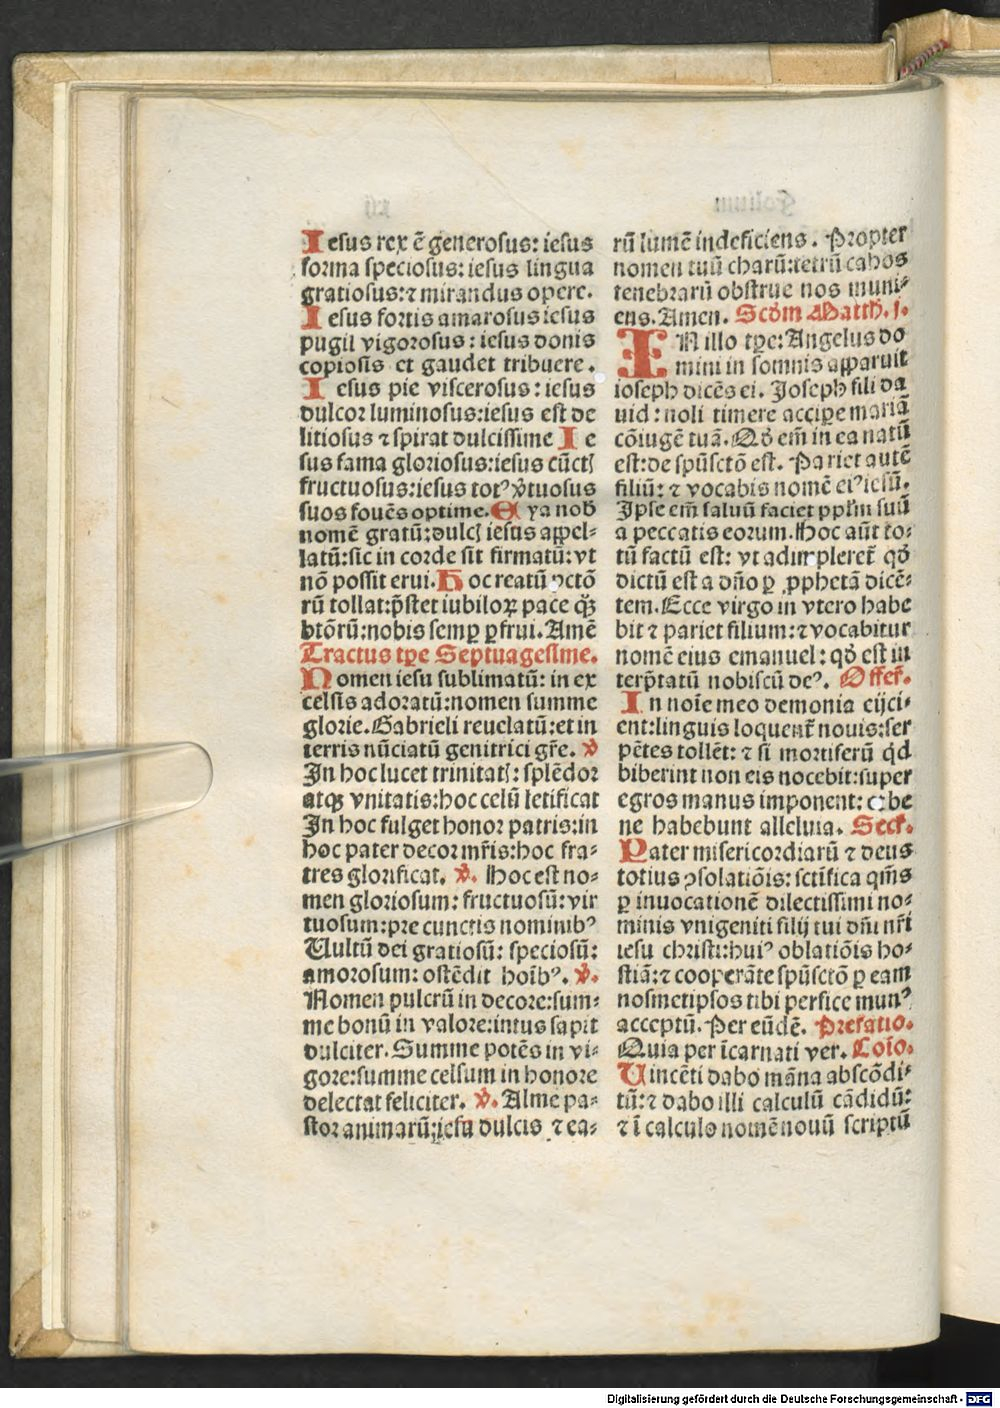 Iesus rex ē generosus: iesus
forma speciosus: iesus lingua
gratiosus: ⁊ mirandus opere.
Iesus fortis amorosus iesus
pugil vigorosus: iesus donis
copiosis et gaudet tribuere.
Iesus pie viscerosus: iesus
dulcor luminosus: iesus est de
litiosus ⁊ spirat dulcissime Ie
sus fama gloriosus: iesus cūctꝭ
fructuosus: iesus totꝰ v̓tuosus
suos fouēs optime. Eya nob
nomē gratū: dulcꝭ iesus appel-
latū: sic in corde sit firmatū: vt
nō possit erui. Hoc reatū ꝯctō
rū tollat: p̄stet iubiloꝝ pace qꝫ
btōrū: nobis semꝑ ꝑfrui. Amē
Tractus tꝑe Septuagesime.
Nomen iesu sublimatū: in ex
celsis adoratū: nomen summe
glorie. Gabrieli reuelatū: et in
terris nūciatū genitrici gr̄e. ℣
In hoc lucet trinitatꝭ: splēdor
atqꝫ vnitatis: hoc celū letificat
In hoc fulget honor patris: in
hoc pater decor mr̄is: hoc fra-
tres glorificat. ℣. Hoc est no-
men gloriosum: fructuosū: vir
tuosum: pre cunctis nominibꝰ
Uultū dei gratiosū: speciosū:
amorosum: ostēdit hoībꝰ. ℣.
Nomen pulcrū in decore: sum-
me bonū in valore: intus sapit
dulciter. Summe potēs in vi-
gore: summe celsum in honore
delectat feliciter. ℣. Alme pa-
stor animarū: iesu dulcis ⁊ ca-
rū lumē indeficiens. Propter
nomen tuū charū: tetrū cahos
tenebrarū obstrue nos muni-
ens. Amen. Scd̓m Matth. j.
IN illo tꝑe: Angelus do
mini in somnis apparuit
ioseph dicēs ei. Joseph fili da
uid: noli timere accipe mariā
cōiugē tuā. Qd̓ em̄ in ea natū
est: de spūsctō est. Pariet autē
filiū: ⁊ vocabis nomē eiꝰ iesū.
Ipse em̄ saluū faciet pplm̄ suū
a peccatis eorum. Hoc aūt to-
tū factū est: vt adimpleret̄ qd̓
dictū est a dn̄o ꝑ ꝓphetā dicē-
tem. Ecce virgo in vtero habe
bit ⁊ pariet filium: ⁊ vocabitur
nomē eius emanuel: qd̓ est in
terp̄tatū nobiscū deꝰ. Offer̄.
In noīe meo demonia eijci-
ent: linguis loquent̄ nouis: ser
pētes tollēt: ⁊ si mortiferū qd
biberint non eis nocebit: super
egros manus imponent: ⁊ be
ne habebunt alleluia. Secr̄.
Pater misericordiarū ⁊ deus
totius ꝯsolatiōis: sctīfica qm̄s
ꝑ inuocationē dilectissimi no-
minis vnigeniti filij tui dn̄i nr̄i
iesu christi: huiꝰ oblatiōis ho-
stiā: ⁊ cooperāte spūsctō ꝑ eam
nosmetipsos tibi perfice munꝰ
acceptū. Per eūdē. Prefatio.
Quia per īcarnati ver. Coīo.
Uincēti dabo māna abscōdi-
tū: ⁊ dabo illi calculū cādidū:
⁊ ī calculo nomē nouū scriptū
Digitalisierung gefördert durch die Deutsche Forschungsgemeinschaft - DFG